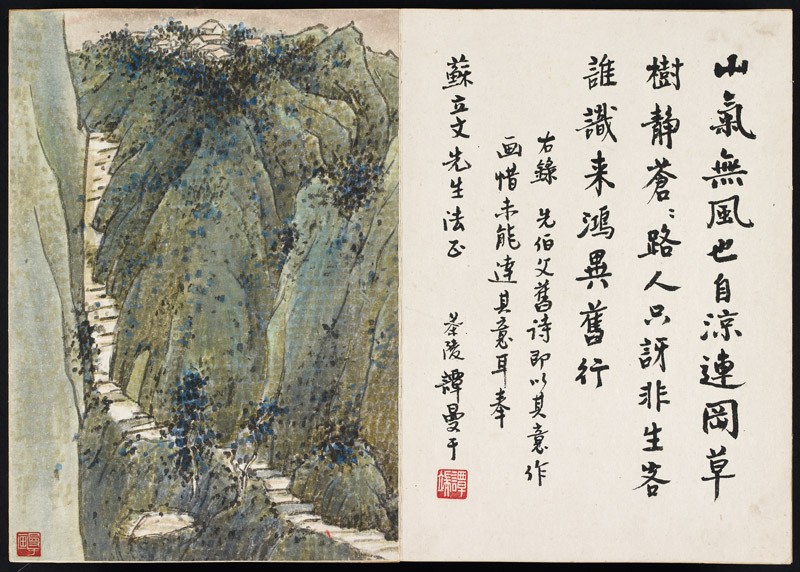 山氣無風也自涼連岡草
樹靜蒼〻路人只訝非生客
誰識来鴻異舊行
右錄 先伯父舊詩即以其意作
画惜未能達其意耳奉
蘇立文先生法正 茶陵譚曼于